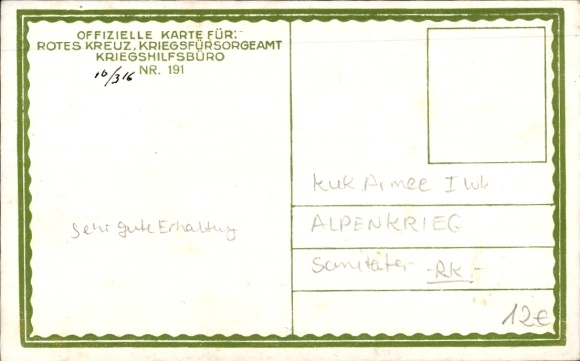 OFFIZIELLE KARTE FÜR:
ROTES KREUZ, KRIEGSFÜRSORGEAMT
KRIEGSHILFSBÜRO
NR. 191
16/3 16
sehr gute Erhaltung
kuk Armee I Wk
ALPENKRIEG
Sanitäter -RK-
12€